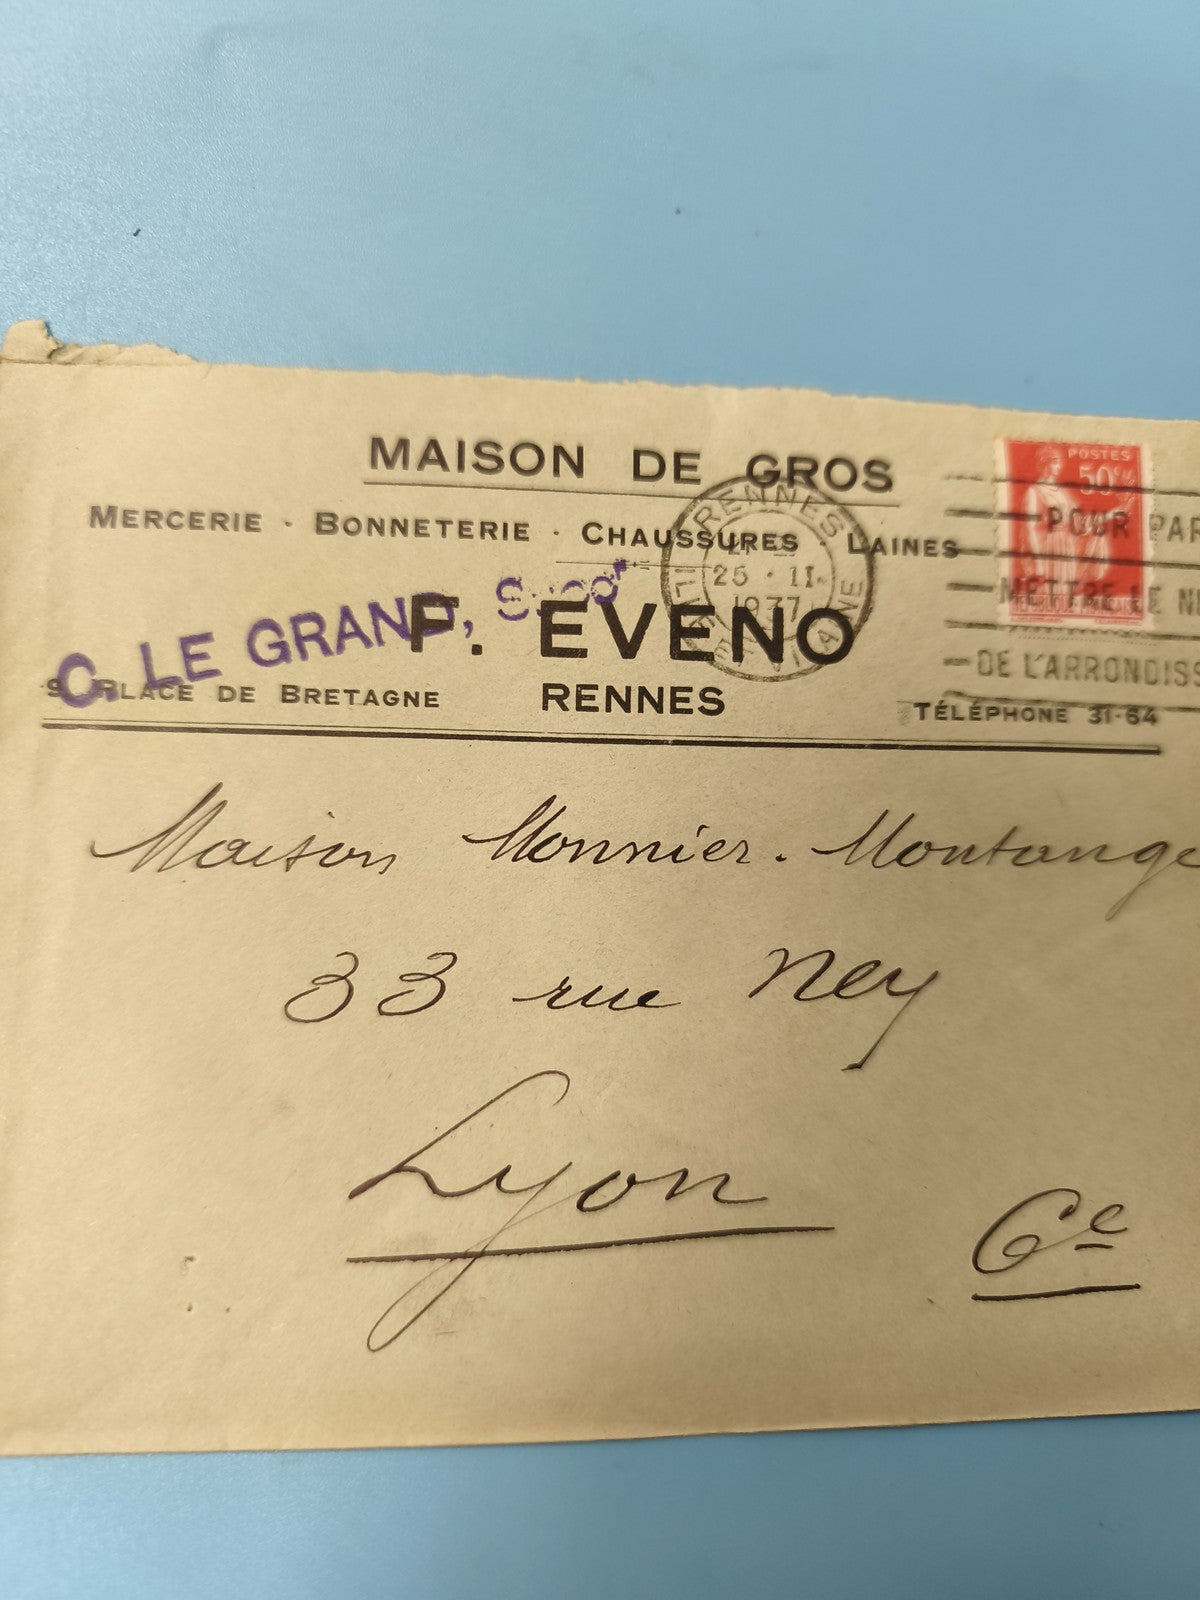 MAISON DE GROS
MERCERIE · BONNETERIE · CHAUSSURES · LAINES
C. LE GRAND, Succr
F. EVENO
PLACE DE BRETAGNE RENNES TÉLÉPHONE 31-64
RENNES
25 · II
1937
ILLE ET VILAINE
POSTES
50c
POUR PAR
METTRE LE N
DE L'ARRONDISS
Maison Monnier. Montange
33 rue Ney
Lyon